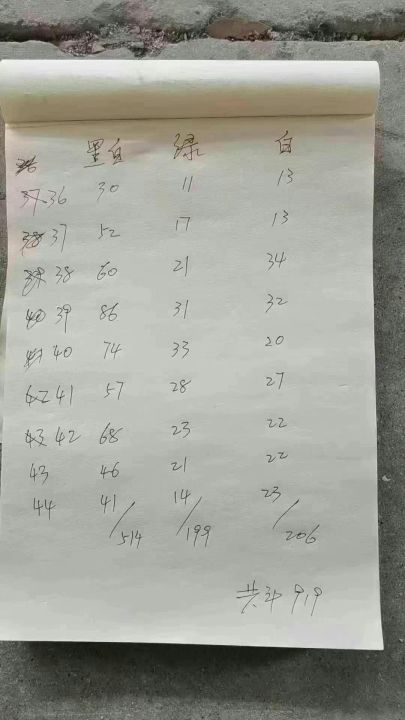 黑白 绿 白
36 30 11 13
37 52 17 13
38 60 21 34
39 86 31 32
40 74 33 20
41 57 28 27
42 68 23 22
43 46 21 22
44 41 14 23
/514 /199 /206
共计 919